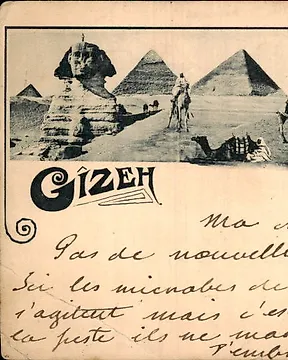 GÎZEH
Ma
Pas de nouvelle
Ici les microbes de
s'agitent mais c'es
la peste ils ne ma
t'emb